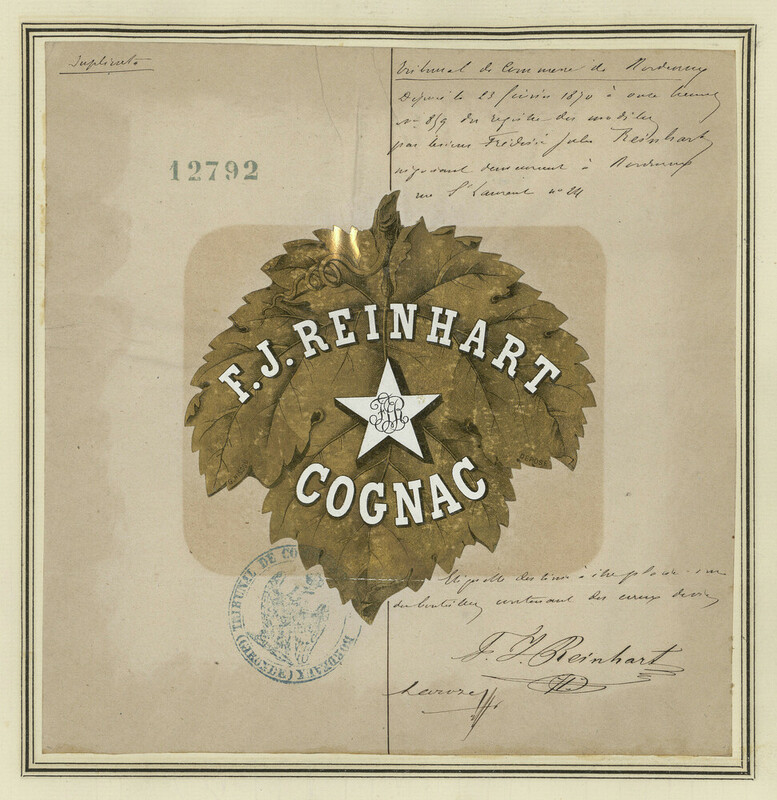 Duplicata
Tribunal de Commerce de Bordeaux
Déposé le 23 février 1870 à onze heures
No 859 du registre des modèles
par Frédéric Jules Reinhart
négociant demeurant à Bordeaux
rue St Laurent no 24
12792
F.J. REINHART
FJR
COGNAC
TRIBUNAL DE CO
BORDEAUX
(GIRONDE)
Etiquette destinée à être placée sur
des bouteilles contenant des eaux de vie
F. J. Reinhart